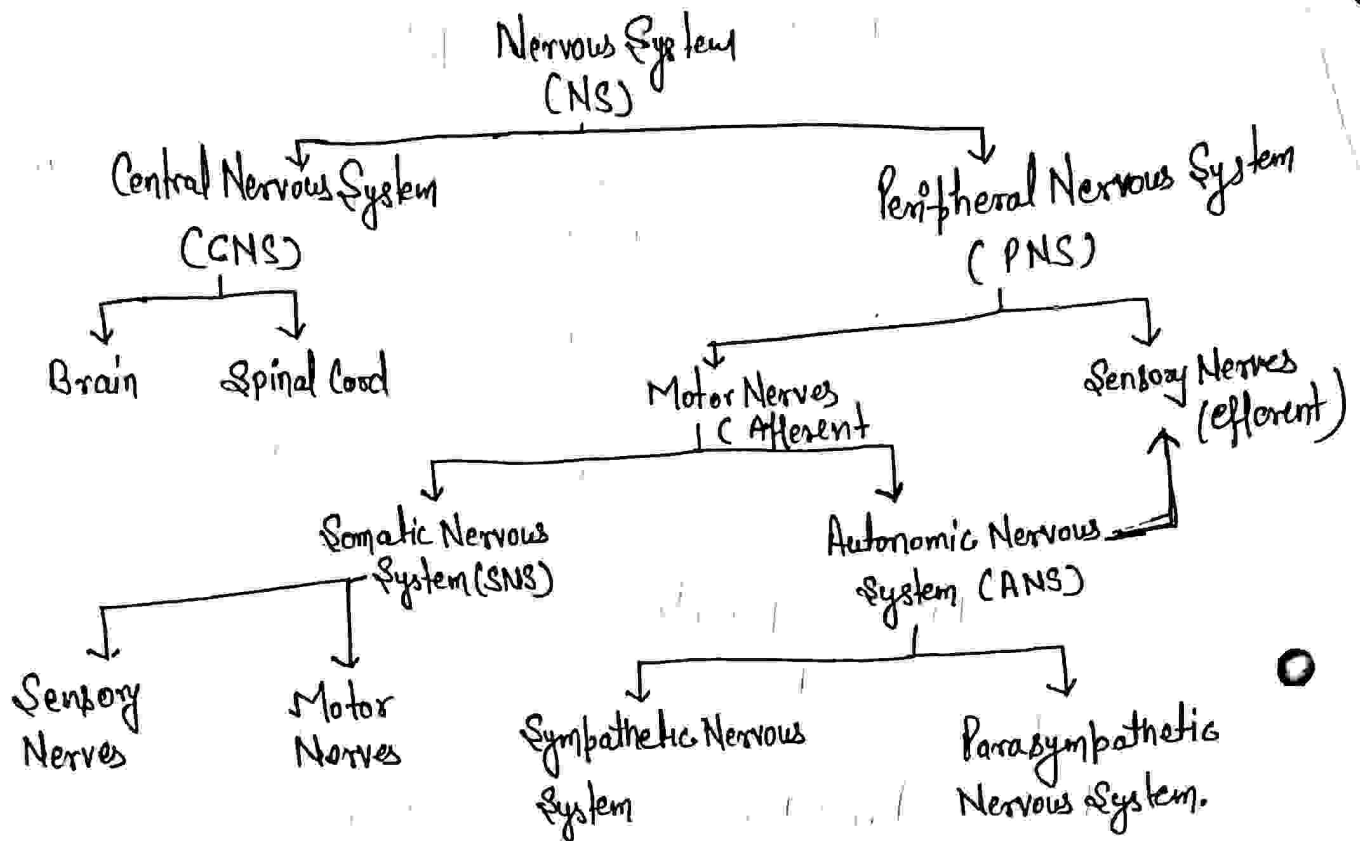 Nervous System
(NS)
Central Nervous System
(CNS)
Peripheral Nervous System
(PNS)
Brain
Spinal Cord
Motor Nerves
( Afferent
Sensory Nerves
(efferent)
Somatic Nervous
System (SNS)
Autonomic Nervous
System (ANS)
Sensory
Nerves
Motor
Nerves
Sympathetic Nervous
System
Parasympathetic
Nervous System.